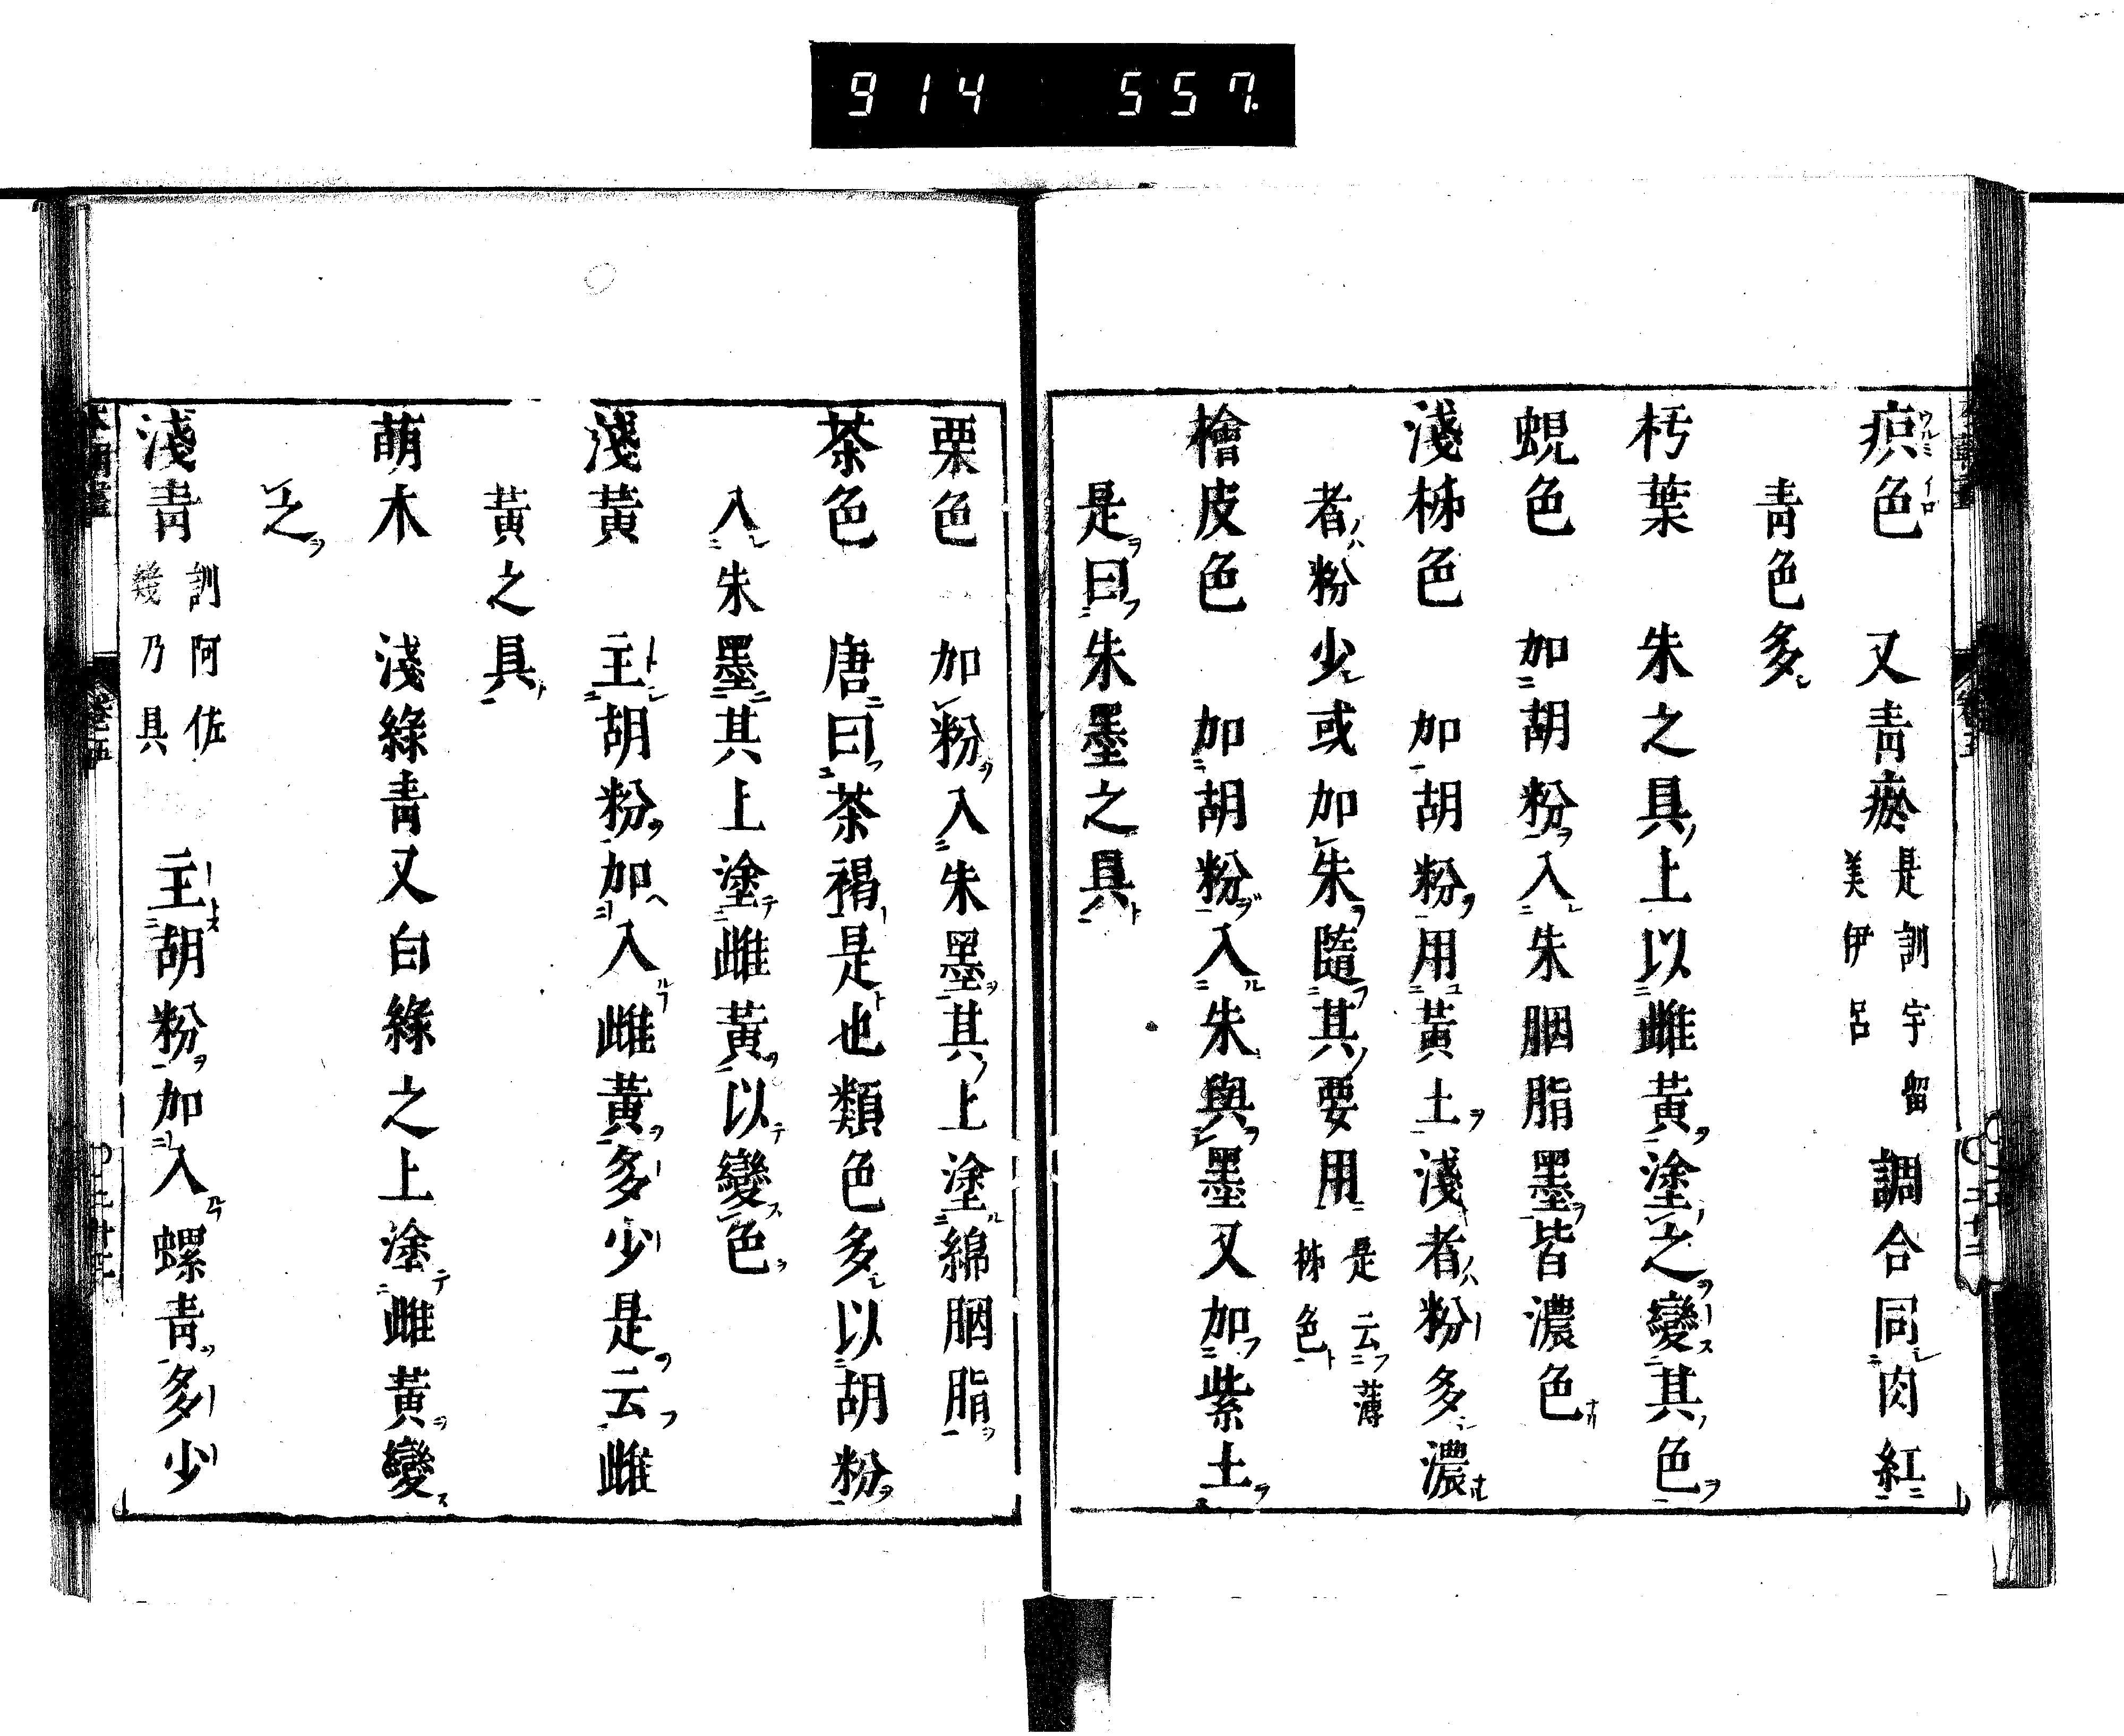 914 557
疻色 又青瘀 是訓宇留美伊呂 調合同肉紅
青色多
朽葉 朱之具上以雌黃塗之變其色
蜆色 加胡粉入朱胭脂墨皆濃色
淺柹色 加胡粉用黃土淺者粉多濃
者粉少或加朱隨其要用 是云薄柹色
檜皮色 加胡粉入朱與墨又加紫土
是曰朱墨之具
栗色 加粉入朱墨其上塗綿胭脂
茶色 唐曰茶褐是也類色多以胡粉
入朱墨其上塗雌黃以變色
淺黃 主胡粉加入雌黃多少是云雌
黃之具
萌木 淺綠青又白綠之上塗雌黃變
之
淺青 訓阿佐幾乃具 主胡粉加入螺青多少